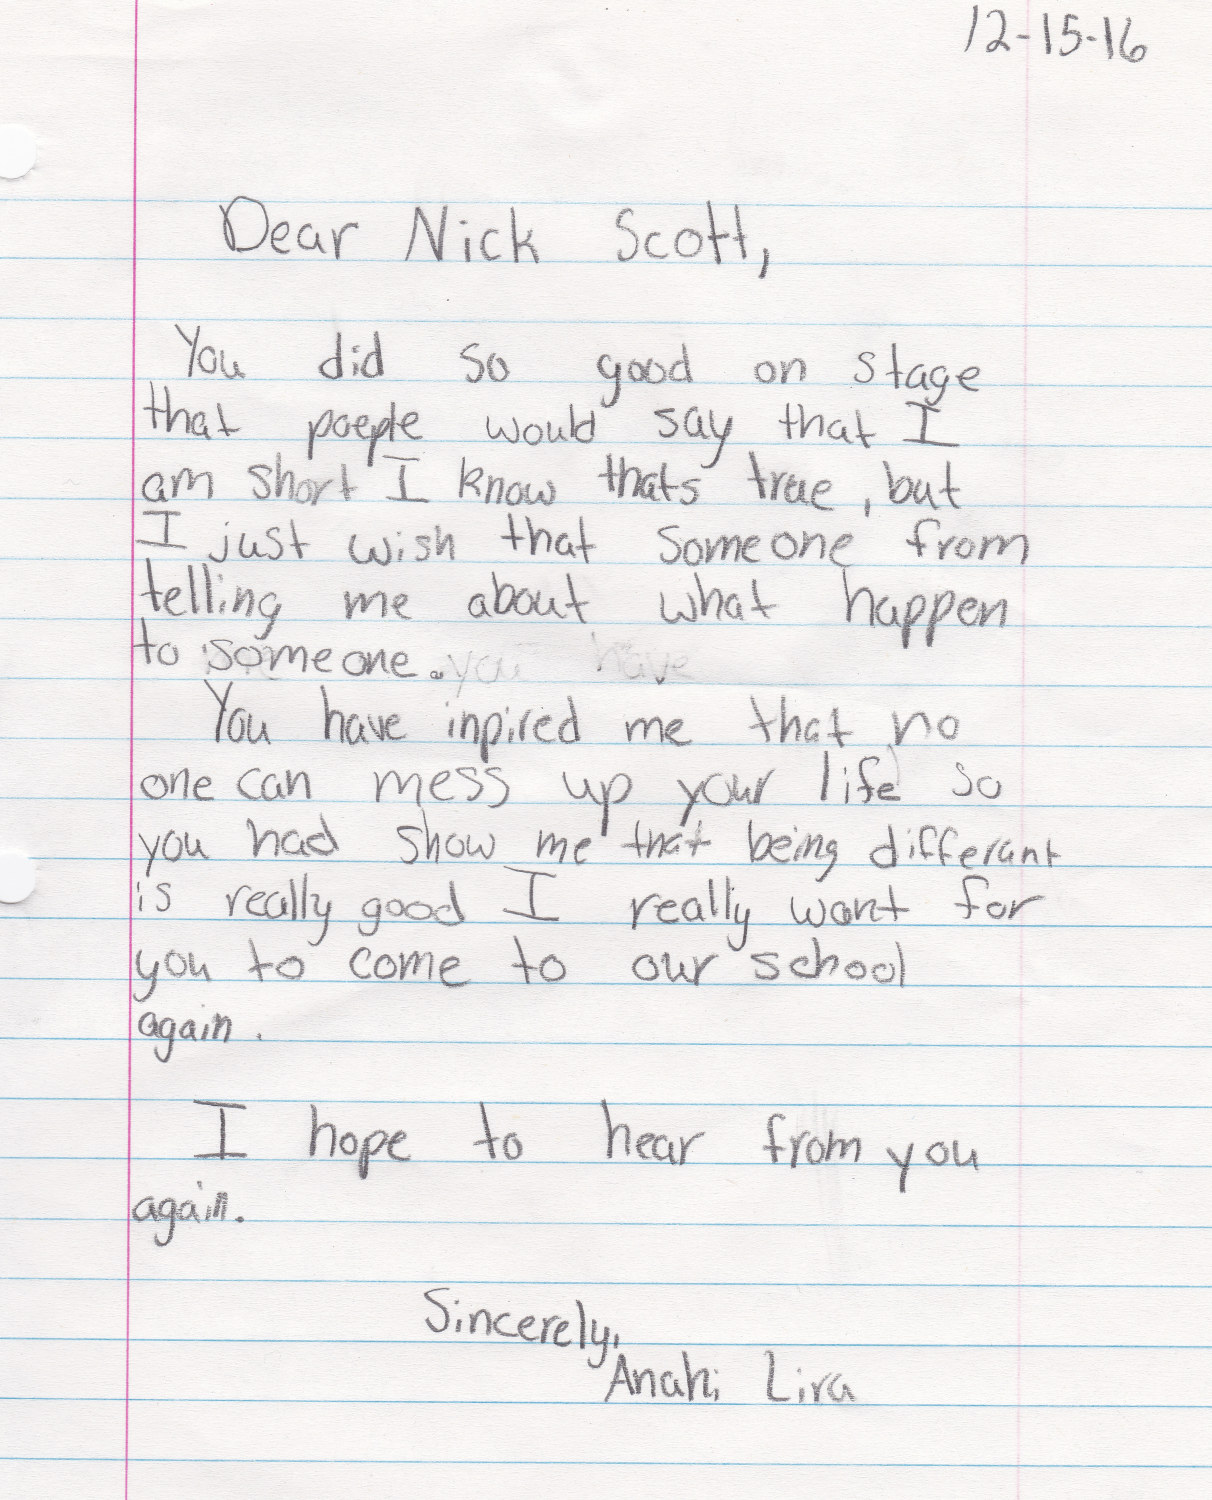 12-15-16
Dear Nick Scott,
You did so good on stage
that poeple would say that I
am short I know thats true, but
I just wish that someone from
telling me about what happen
to someone. you have
You have inpired me that no
one can mess up your life so
you had show me that being differant
is really good I really want for
you to come to our school
again.
I hope to hear from you
again.
Sincerely,
Anahi Lira